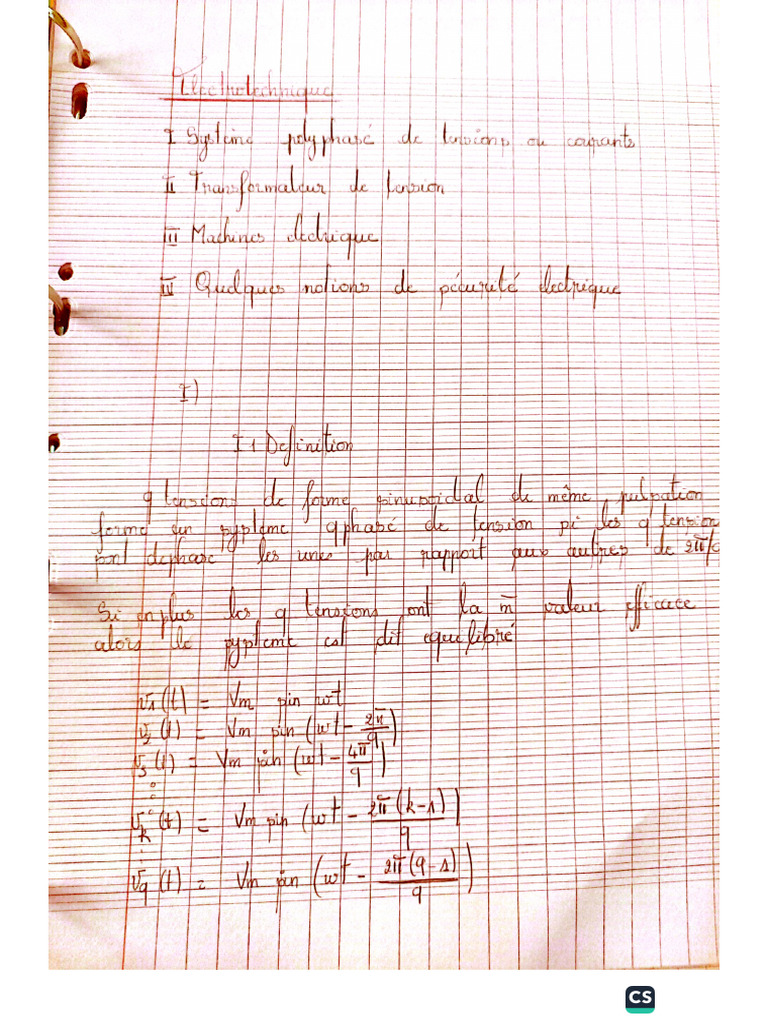 Electrotechnique
I Système polyphasé de tensions ou courants
II Transformateur de tension
III Machines electrique
IV Quelques notions de sécurité electrique
I)
I 1 Definition
q tensions de forme sinusoidal de même pulsation
forme un système q phasé de tension si les q tension
sont dephase les unes par rapport aux autres de 2π/
Si en plus les q tensions ont la m̄ valeur efficace
alors le systeme est dit equilibré
v₁(t) = Vm sin wt
v₂(t) = Vm sin (wt - 2π/q)
v₃(t) = Vm sin (wt - 4π/q)
vₖ(t) = Vm sin (wt - 2π(k-1)/q)
vq(t) = Vm sin (wt - 2π(q-1)/q)
CS